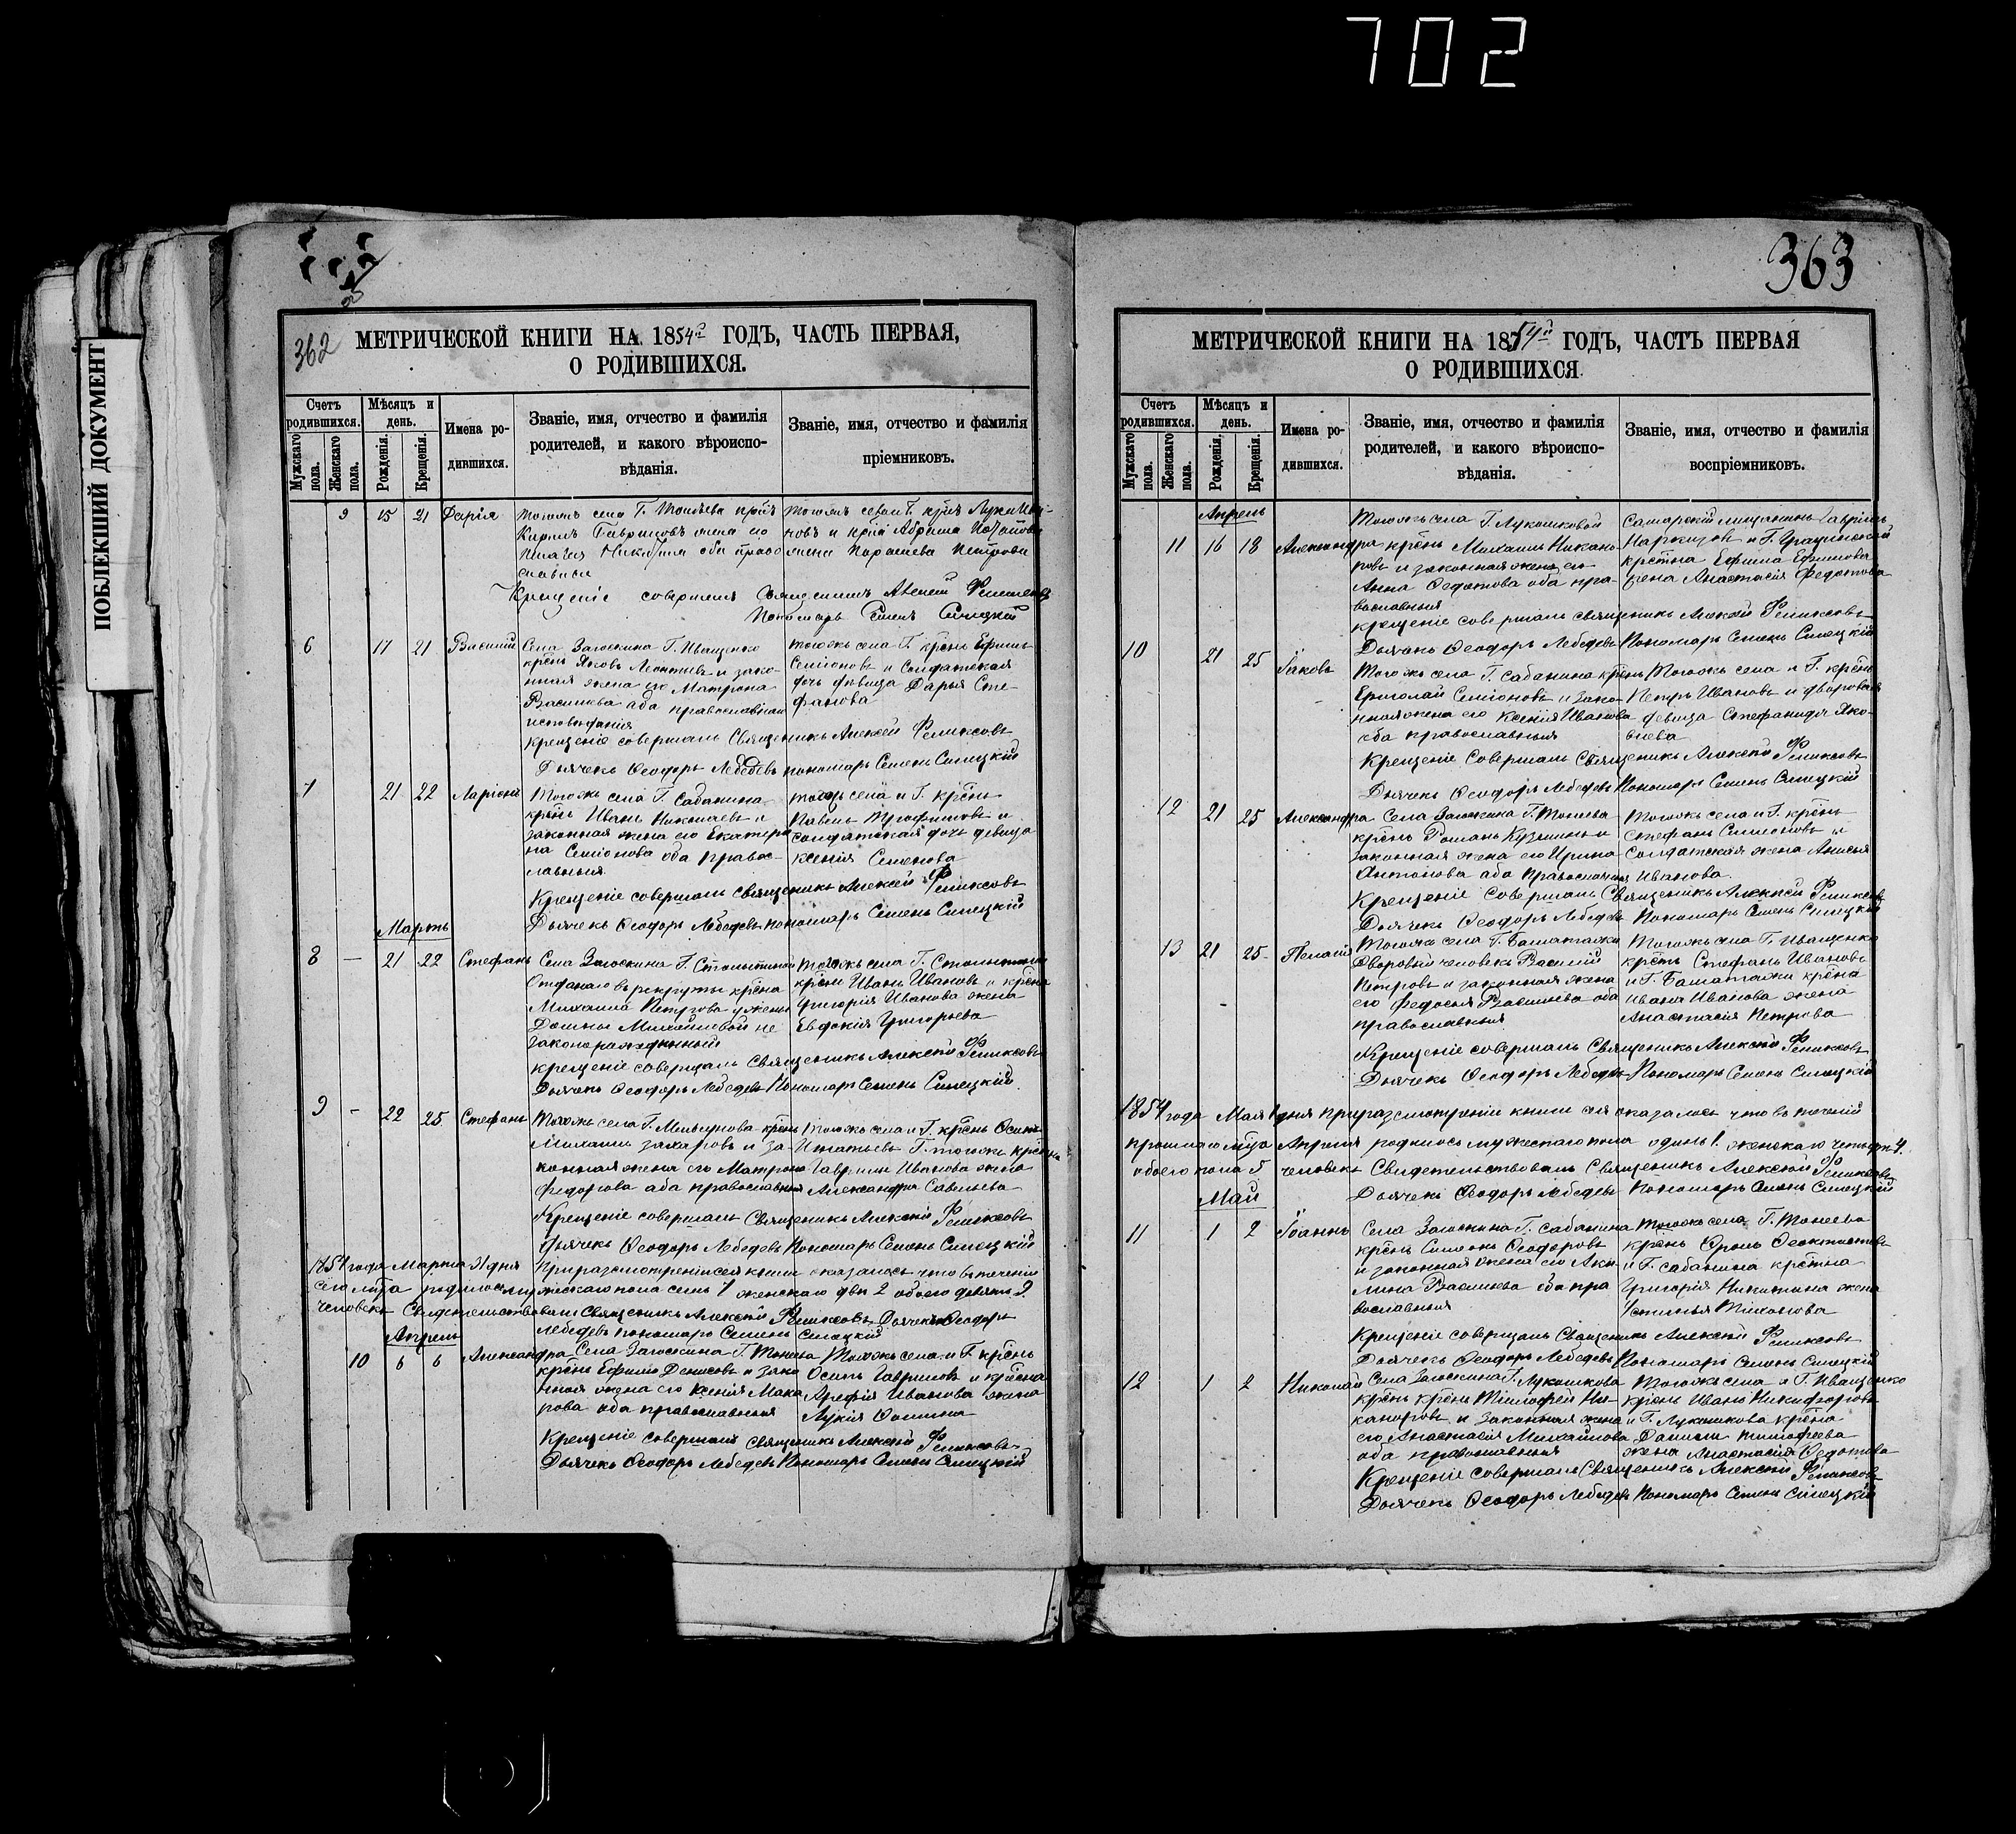 702
ПОБЛЕКШИЙ ДОКУМЕНТ
362
МЕТРИЧЕСКОЙ КНИГИ НА 1854й ГОДЪ, ЧАСТЬ ПЕРВАЯ,
О РОДИВШИХСЯ.
Счетъ родившихся.
Мужскаго пола.
Женскаго пола.
Мѣсяцъ и день.
Рожденія.
Крещенія.
Имена ро-
дившихся.
Званіе, имя, отчество и фамилія
родителей, и какого вѣроиспо-
вѣданія.
Званіе, имя, отчество и фамилія
пріемниковъ.
15 21 Дарія
славныи
Крещеніе совершилъ
Пономарь
6 17 21 Села Загоскина Г. Иващенко
крѣнъ Яковъ Леонтьевъ и зако-
нная жена его Матрона
Васильева оба православнаго
исповѣданія
тогожъ села Г. крѣнъ Ефимъ
Семіоновъ и Солдатская
дочь дѣвица Дарья Сте-
фанова
Крещеніе совершалъ Священникъ Алексѣй Феликсовъ
Дьячекъ Ѳеодоръ Лебедевъ пономарь Семенъ Синецкій
7 21 22 Ларіонъ Тогожъ села Г. Сабанина
крѣнъ Иванъ Николаевъ и
законная жена его Екатери
на Семіонова оба правос-
лавныя
тогожъ села и Г. крѣнъ
Павелъ Трофимовъ и
солдатская дочь дѣвица
Ксенія Семенова
Крещеніе совершалъ священникъ Алексѣй Феликсовъ
Дьячекъ Ѳеодоръ Лебедевъ пономарь Семенъ Синецкій
Мартъ
8 — 21 22 Стефанъ Села Загоскина Г.
Отданаго в рекруты крѣна
Михаила Петрова у жены
Домны Михайловой не
законорожденный
крѣнъ Иванъ Ивановъ и крѣна
Григорія Иванова жена
Евдокія Григорьева
крещеніе совершалъ Священникъ Алексѣй Феликсовъ
Дьячекъ Ѳеодоръ Лебедевъ Пономарь Семенъ Синецкій
9 - 22 25 Стефанъ Тогожъ села Г. крѣнъ
Михаилъ Захаровъ и за-
конная жена его Матрона
Федорова оба православныя
Тогожъ села и Г. крѣнъ Осипъ
Игнатьевъ Г. тогожъ крѣна
Гаврилы Иванова жена
Александра Савельева
Крещеніе совершалъ Священникъ Алексѣй Феликсовъ
Дьячекъ Ѳеодоръ Лебедевъ Пономарь Семенъ Синецкій
1854 года Марта 31 дня При разсмотреніи сей книги оказалось что въ теченіи
сего мѣца родилось мужескаго пола семь 7 женскаго двѣ 2 обоего девять 9
человекъ Свидетельствовали Священникъ Алексѣй Феликсовъ Дьячекъ Ѳеодоръ
Лебедевъ пономарь Семенъ Синецкій
Апрель
10 6 6 Александра Села Загоскина Г. Тонеева
крѣнъ Ефимъ Денисовъ и зако
нная жена его Ксенія Мака
рова оба православныя
Тогожъ села и Г. крѣнъ
Осипъ Гавриловъ и крѣна
Арефія Иванова жена
Лукія Фомина
Крещеніе совершалъ священникъ Алексѣй Феликсовъ
Дьячекъ Ѳеодоръ Лебедевъ Пономарь Семенъ Синецкій
363
МЕТРИЧЕСКОЙ КНИГИ НА 1854й ГОДЪ, ЧАСТЬ ПЕРВАЯ
О РОДИВШИХСЯ
Счетъ родившихся.
Мужскаго пола.
Женскаго пола.
Мѣсяцъ и день.
Рожденія.
Крещенія.
Имена ро-
дившихся.
Званіе, имя, отчество и фамилія
родителей, и какого вѣроиспо-
вѣданія.
Званіе, имя, отчество и фамилія
воспріемниковъ.
Апрель
11 16 18 Александра Тогожъ села Г. Лукошковой
крѣнъ Михаилъ Никано-
ровъ и законная жена его
Анна Федотова оба пра-
вославныя
Самарскій мещанинъ Гавріилъ
крѣстна Ефима Ефимова
жена Анастасія Федотова
крещеніе совершалъ священникъ Алексѣй Феликсовъ
Дьячекъ Ѳеодоръ Лебедевъ Пономарь Семенъ Синецкій
10 21 25 Іяковъ Тогожъ села Г. Сабанина крѣнъ
Ермолай Семіоновъ и зако-
нная жена его Ксенія Иванова
оба православныя
Тогожъ села и Г. крѣнъ
Петръ Ивановъ и дворовая
дѣвица Стефанида Яко-
влева
Крещеніе Совершалъ Священникъ Алексѣй Феликсовъ
Дьячекъ Ѳеодоръ Лебедевъ Пономарь Семенъ Синецкій
12 21 25 Александра Села Загоскина Г. Тонеева
крѣнъ Романъ Кузьминъ и
законная жена его Ирина
Антонова оба Православныя
Тогожъ села и Г. крѣнъ
Стефанъ Симеоновъ и
Солдатская жена Анисья
Иванова.
Крещеніе Совершалъ Священникъ Алексѣй Феликсовъ
Дьячекъ Ѳеодоръ Лебедевъ Пономарь Семенъ Синецкій
13 21 25 Тогожъ села Г.
Дворовый человекъ Василій
Петровъ и законная жена
его Федосья Васильева оба
православныя
Тогожъ села Г. Иващенко
крѣнъ Стефанъ Ивановъ
и Г. крѣна
Ивана Иванова жена
Анастасія Петрова
Крещеніе совершалъ Священникъ Алексѣй Феликсовъ
Дьячекъ Ѳеодоръ Лебедевъ Пономарь Семенъ Синецкій
1854 года Мая 1 дня при разсмотреніи книги сія оказалось что въ теченіи
прошлаго мѣца Апреля родилось мужескаго пола одинъ 1. женскаго четыре 4.
обоего пола 5 человекъ Свидетельствовали Священникъ Алексѣй Феликсовъ
Дьячекъ Ѳеодоръ Лебедевъ Пономарь Семенъ Синецкій
Май
11 1 2 Іоаннъ Села Загоскина Г. Сабанина
крѣнъ Симеонъ Ѳеодоровъ
и законная жена его Аку-
лина Васильева оба пра
вославныя
Тогожъ села Г. Тонеева
крѣнъ Фролъ Ѳеоктистовъ
и Г. Сабанина крѣстна
Григорія Никитина жена
Устинья Тихонова
Крещеніе совершалъ Священникъ Алексѣй Феликсовъ
Дьячекъ Ѳеодоръ Лебедевъ Пономарь Семенъ Синецкій
12 1 2 Николай Села Загоскина Г. Лукошкова
крѣнъ крѣнъ Тимофей Ни-
каноровъ и законная жена
его Анастасія Михайлова
оба православныя
Тогожъ села и Г. Иващенко
крѣнъ Иванъ Никифоровъ
и Г. Лукошкова крѣна
Данилы Тимофеева
жена Анастасія Федотова
Крещеніе совершалъ Священникъ Алексѣй Феликсовъ
Дьячекъ Ѳеодоръ Лебедевъ Пономарь Семенъ Синецкій